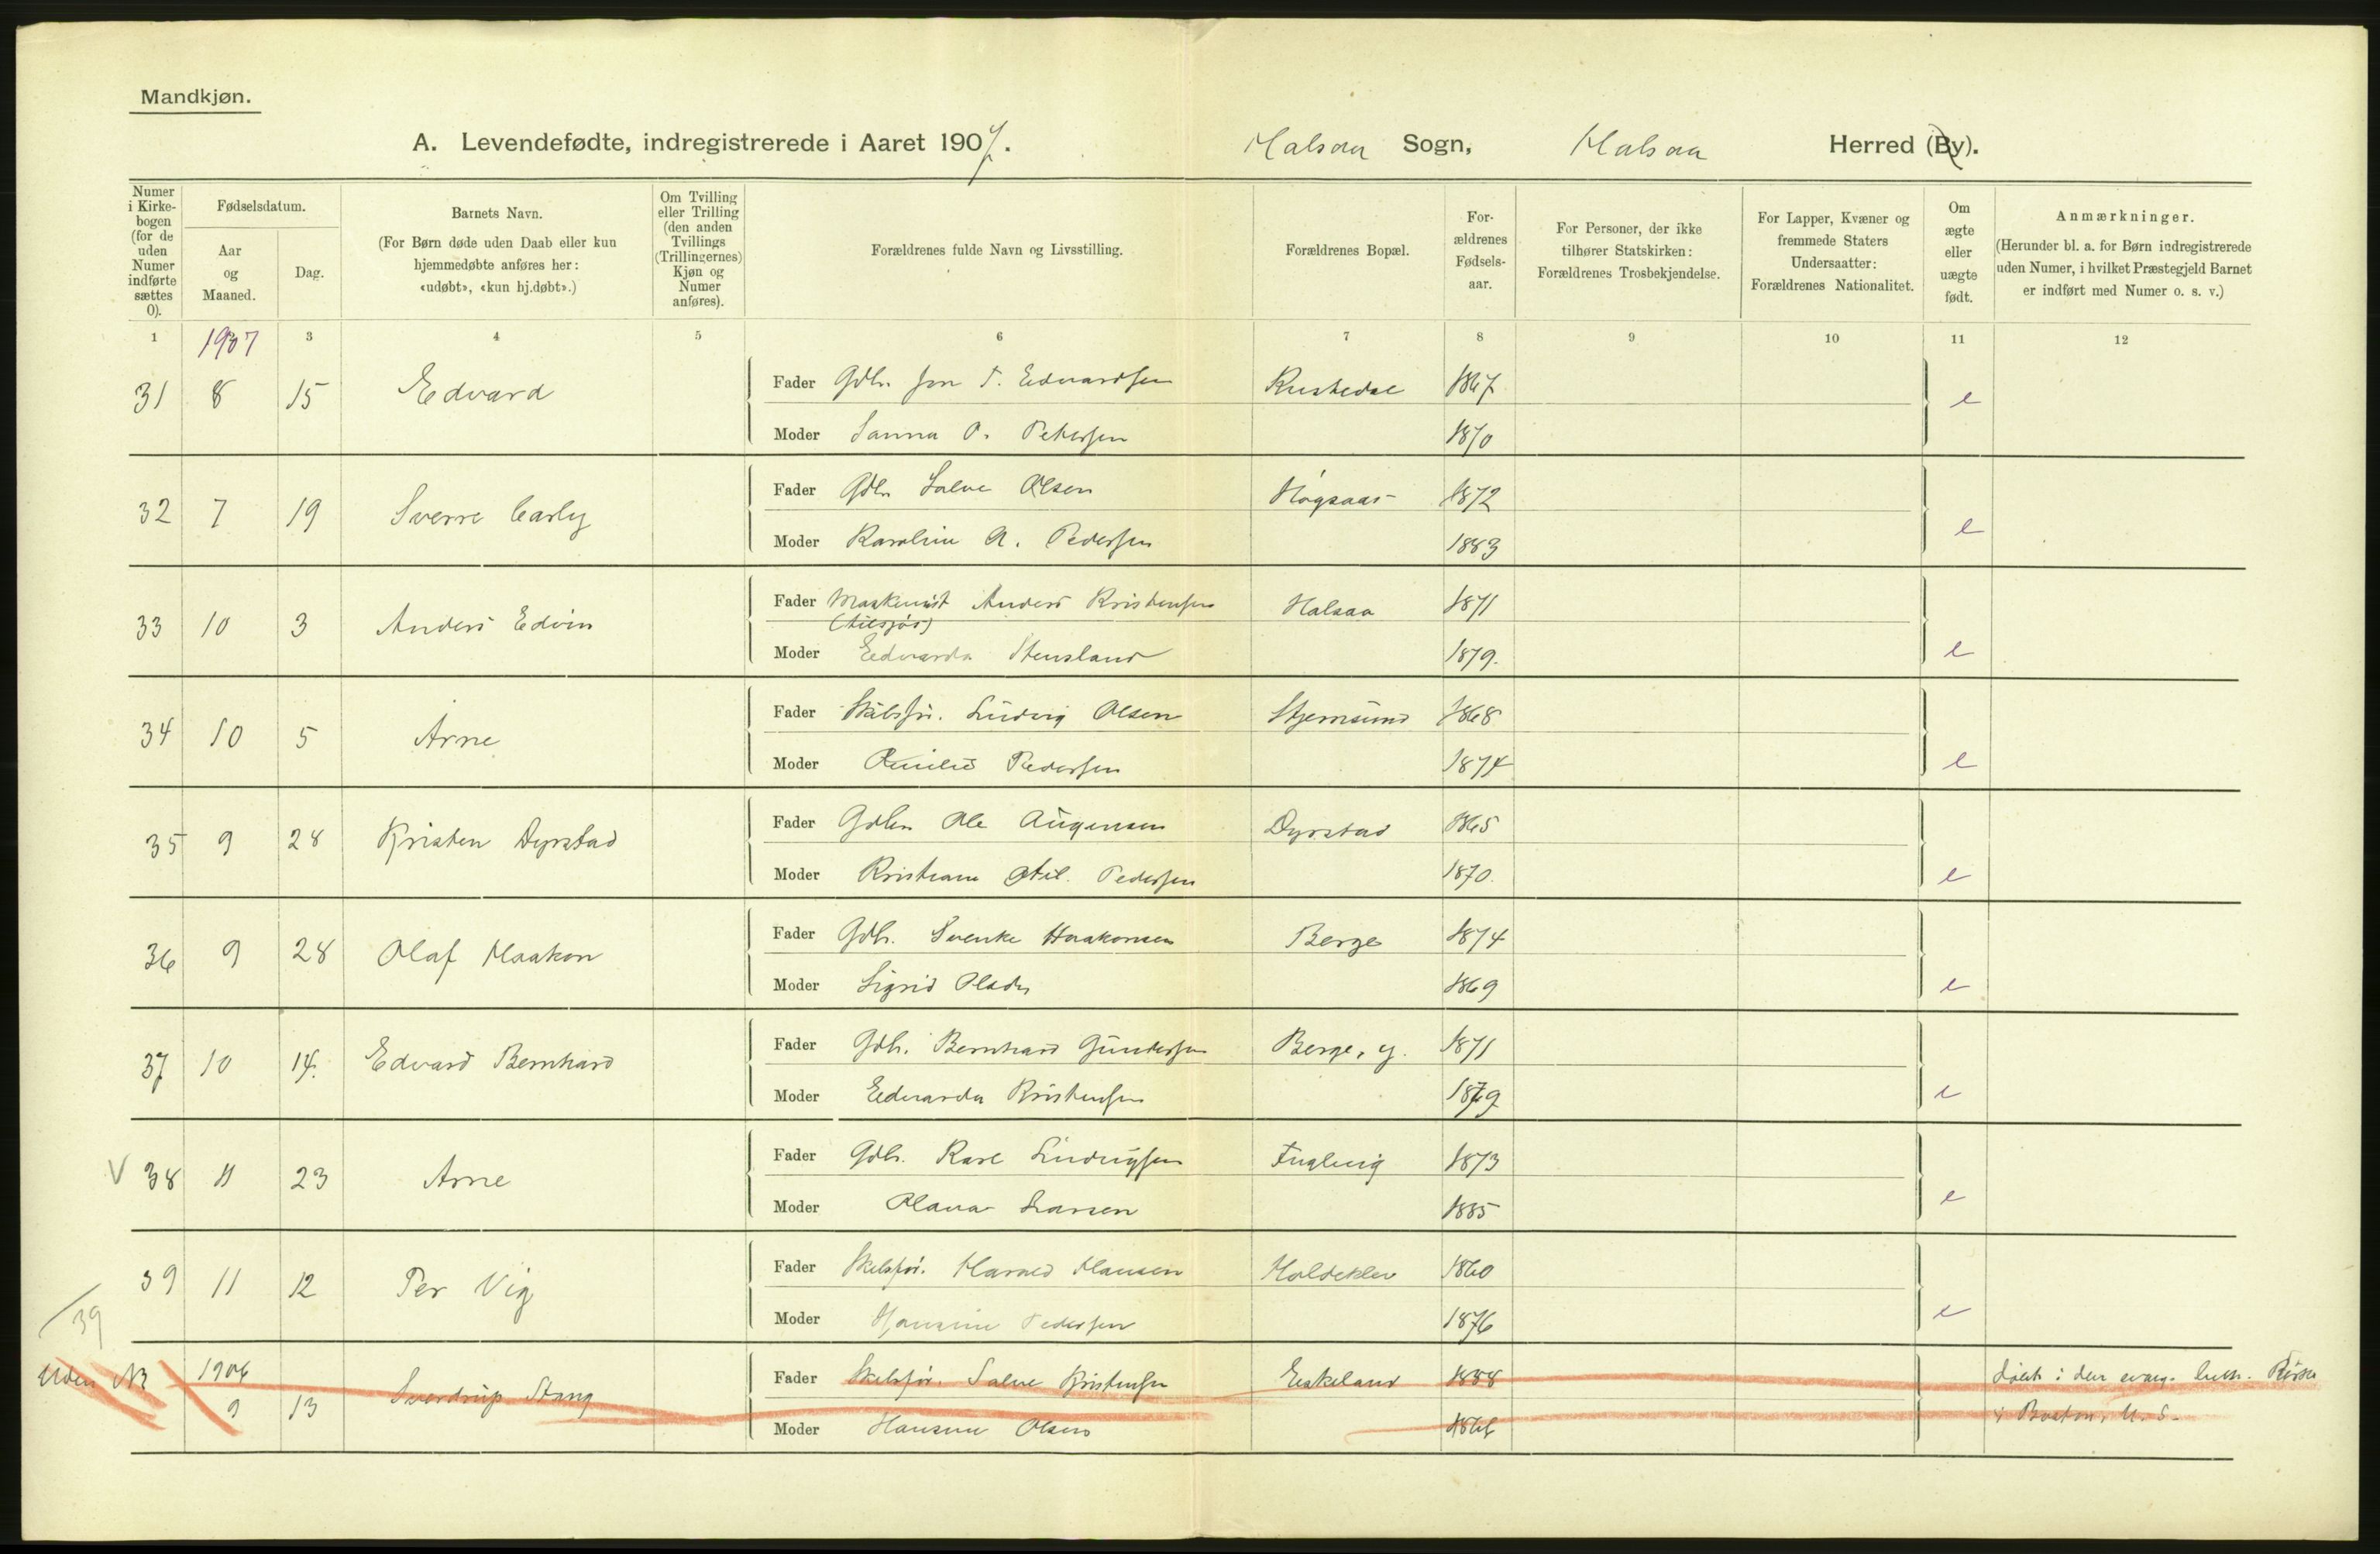 Mandkjøn.
A. Levendefødte, indregistrerede i Aaret 1907. Halsaa Sogn, Halsaa Herred (By).
Numer i Kirke-bogen (for de uden Numer indførte sættes 0).
Fødselsdatum.
Aar og Maaned.
Dag.
Barnets Navn.
(For Børn døde uden Daab eller kun hjemmedøbte anføres her: «udøbt», «kun hj.døbt».)
Om Tvilling eller Trilling (den anden Tvillings (Trillingernes) Kjøn og Numer anføres).
Forældrenes fulde Navn og Livsstilling.
Forældrenes Bopæl.
For-ældrenes Fødsels-aar.
For Personer, der ikke tilhører Statskirken: Forældrenes Trosbekjendelse.
For Lapper, Kvæner og fremmede Staters Undersaatter: Forældrenes Nationalitet.
Om ægte eller uægte født.
Anmærkninger.
(Herunder bl. a. for Børn indregistrerede uden Numer, i hvilket Præstegjeld Barnet er indført med Numer o. s. v.)
1 1907 3 4 5 6 7 8 9 10 11 12
31 8 15 Edvard Fader Gdbr. Jon T. Edvardsen 1867 e
Moder Sanna P. Petersen 1870
32 7 19 Sverre Carly Fader Gdbr Salve Olsen Høgsaas 1872 e
Moder Karoline A. Pedersen 1883
33 10 3 Anders Edvin Fader Maskinist Anders Kristensen Halsaa 1871
(tilsjøs)
Moder Edvarda Stensland 1879. e
34 10 5 Arne Fader Skibsfør. Ludvig Olsen Stjernsund 1868
Moder Emilie Pedersen 1874 e
35 9 28 Kristen Dyrstad Fader Gdbr Ole Augensen Dyrstad 1865
Moder Kristiane Otil. Pedersen 1870. e
36 9 28 Olaf Haakon Fader Gdbr. Svenke Haakonsen Berge 1874
Moder Sigrid 1869 e
37 10 14. Edvard Bernhard Fader Gdbr. Bernhard Gundersen Berge, y. 1871
Moder Edvarda Kristensen 1879 e
V 38 11 23 Arne Fader Gdbr. Karl Ludvigsen Fuglevig 1873
Moder Olava Larsen 1885 e
39 11 12 Per Vig Fader Skibsfør. Harald Hansen 1860
39 Moder Hansine Pedersen 1876 e
Uden No 1906
9 13 Sverdrup Stang Fader Skibsfør. Salve Kristensen Eskeland 1858 Døbt i den evang. luth. Kirke
Moder Hansine Olsen 1866 i Boston, U. S.